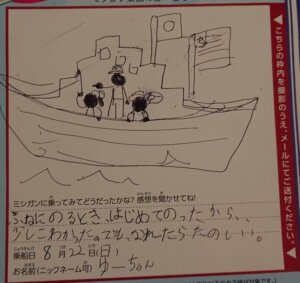 ミシガンに乗ってみてどうだったかな? 感想を聞かせてね!
ふねにのるとき、はじめてのったから、
少しこわかったのでも、なれたらたのしい。
乗船日 8月22日(日)
お名前(ニックネーム可) ゆーちゃん
◀こちらの枠内を撮影のうえ、メールにてご送付ください。◀